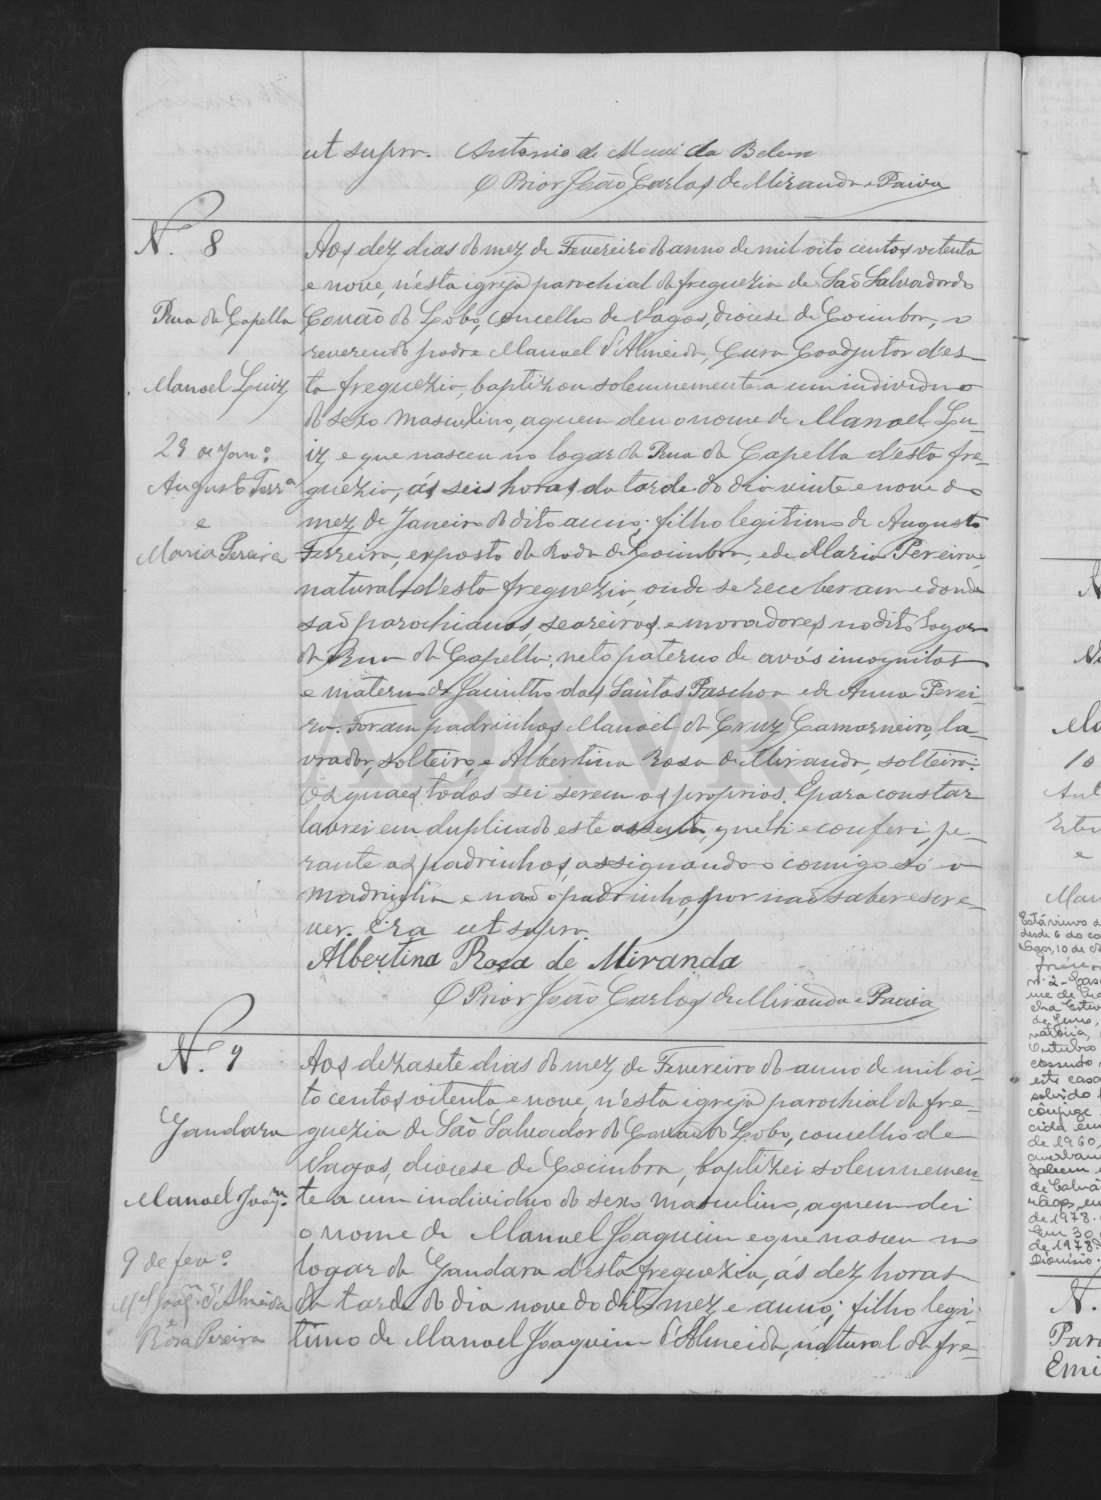 ut supra. Antonio de
O Prior João Carlos de Miranda e Paiva
N.º 8
Rua da Capella
Manoel Luiz
29 de Jan.º
Augusto Ferr.ª
e
Maria Pereira
Aos dez dias do mez de Fevereiro do anno de mil oito centos oitenta
e nove, n'esta igreja parochial da freguezia de São Salvador do
Covão do Lobo, concelho de Vagos, diocese de Coimbra, o
reverendo padre Manuel d'Almeida, Cura Coadjutor d'es-
ta freguezia, baptizou solemnemente a um individuo
do sexo masculino, a quem deu o nome de Manoel Lu-
iz, e que nasceu no logar da Rua da Capella d'esta fre-
guezia, ás seis horas da tarde do dia vinte e nove do
mez de Janeiro do dito anno; filho legitimo de Augusto
Ferreira, exposto da Roda de Coimbra, e de Maria Pereira,
natural d'esta freguezia, onde se receberam e donde
são parochianos, seareiros e moradores no dito logar
da Rua da Capella; neto paterno de avós incognitos
e materno de Jacintho dos Santos Paschoa e de Anna Perei-
ra. Foram padrinhos Manoel da Cruz Camarneiro, la-
vrador, solteiro, e Albertina Rosa de Miranda, solteira.
Os quaes todos sei serem os proprios. E para constar
lavrei em duplicado este assento, que li e conferi, pe-
rante os padrinhos, assignando comigo só a
madrinha e não o padrinho, por não saber escre-
ver. Era ut supra.
Albertina Rosa de Miranda
O Prior João Carlos de Miranda e Paiva
N.º 9
Gandara
Manoel Joaq.m
9 de fev.º
M.el Joaq.m d'Almeida
Rosa Pereira
Aos dezasete dias do mez de Fevereiro do anno de mil oi-
to centos oitenta e nove, n'esta igreja parochial da fre-
guezia de São Salvador do Covão do Lobo, concelho de
Vagos, diocese de Coimbra, baptizei solemnemen-
te a um individuo do sexo masculino, a quem dei
o nome de Manoel Joaquim e que nasceu no
logar da Gandara d'esta freguezia, ás dez horas
da tarde do dia nove do dito mez e anno; filho legi-
timo de Manoel Joaquim d'Almeida, natural da fre-
ADAVR